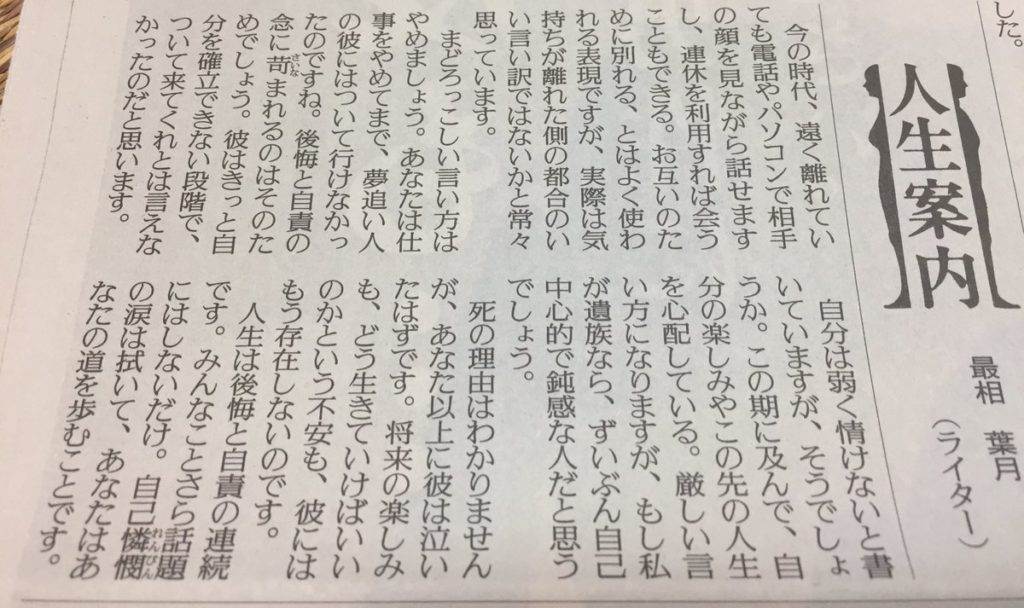 した。
人生案内
最相 葉月
(ライター)
今の時代、遠く離れてい
ても電話やパソコンで相手
の顔を見ながら話せます
し、連休を利用すれば会う
こともできる。お互いのた
めに別れる、とはよく使わ
れる表現ですが、実際は気
持ちが離れた側の都合のい
い言い訳ではないかと常々
思っています。
まどろっこしい言い方は
やめましょう。あなたは仕
事をやめてまで、夢追い人
の彼にはついて行けなかっ
たのですね。後悔と自責の
念に苛さいなまれるのはそのた
めでしょう。彼はきっと自
分を確立できない段階で、
ついて来てくれとは言えな
かったのだと思います。
自分は弱く情けないと書
いていますが、そうでしょ
うか。この期に及んで、自
分の楽しみやこの先の人生
を心配している。厳しい言
い方になりますが、もし私
が遺族なら、ずいぶん自己
中心的で鈍感な人だと思う
でしょう。
死の理由はわかりません
が、あなた以上に彼は泣い
たはずです。将来の楽しみ
も、どう生きていけばいい
のかという不安も、彼には
もう存在しないのです。
人生は後悔と自責の連続
です。みんなことさら話題
にはしないだけ。自己憐憫れんびん
の涙は拭いて、あなたはあ
なたの道を歩むことです。